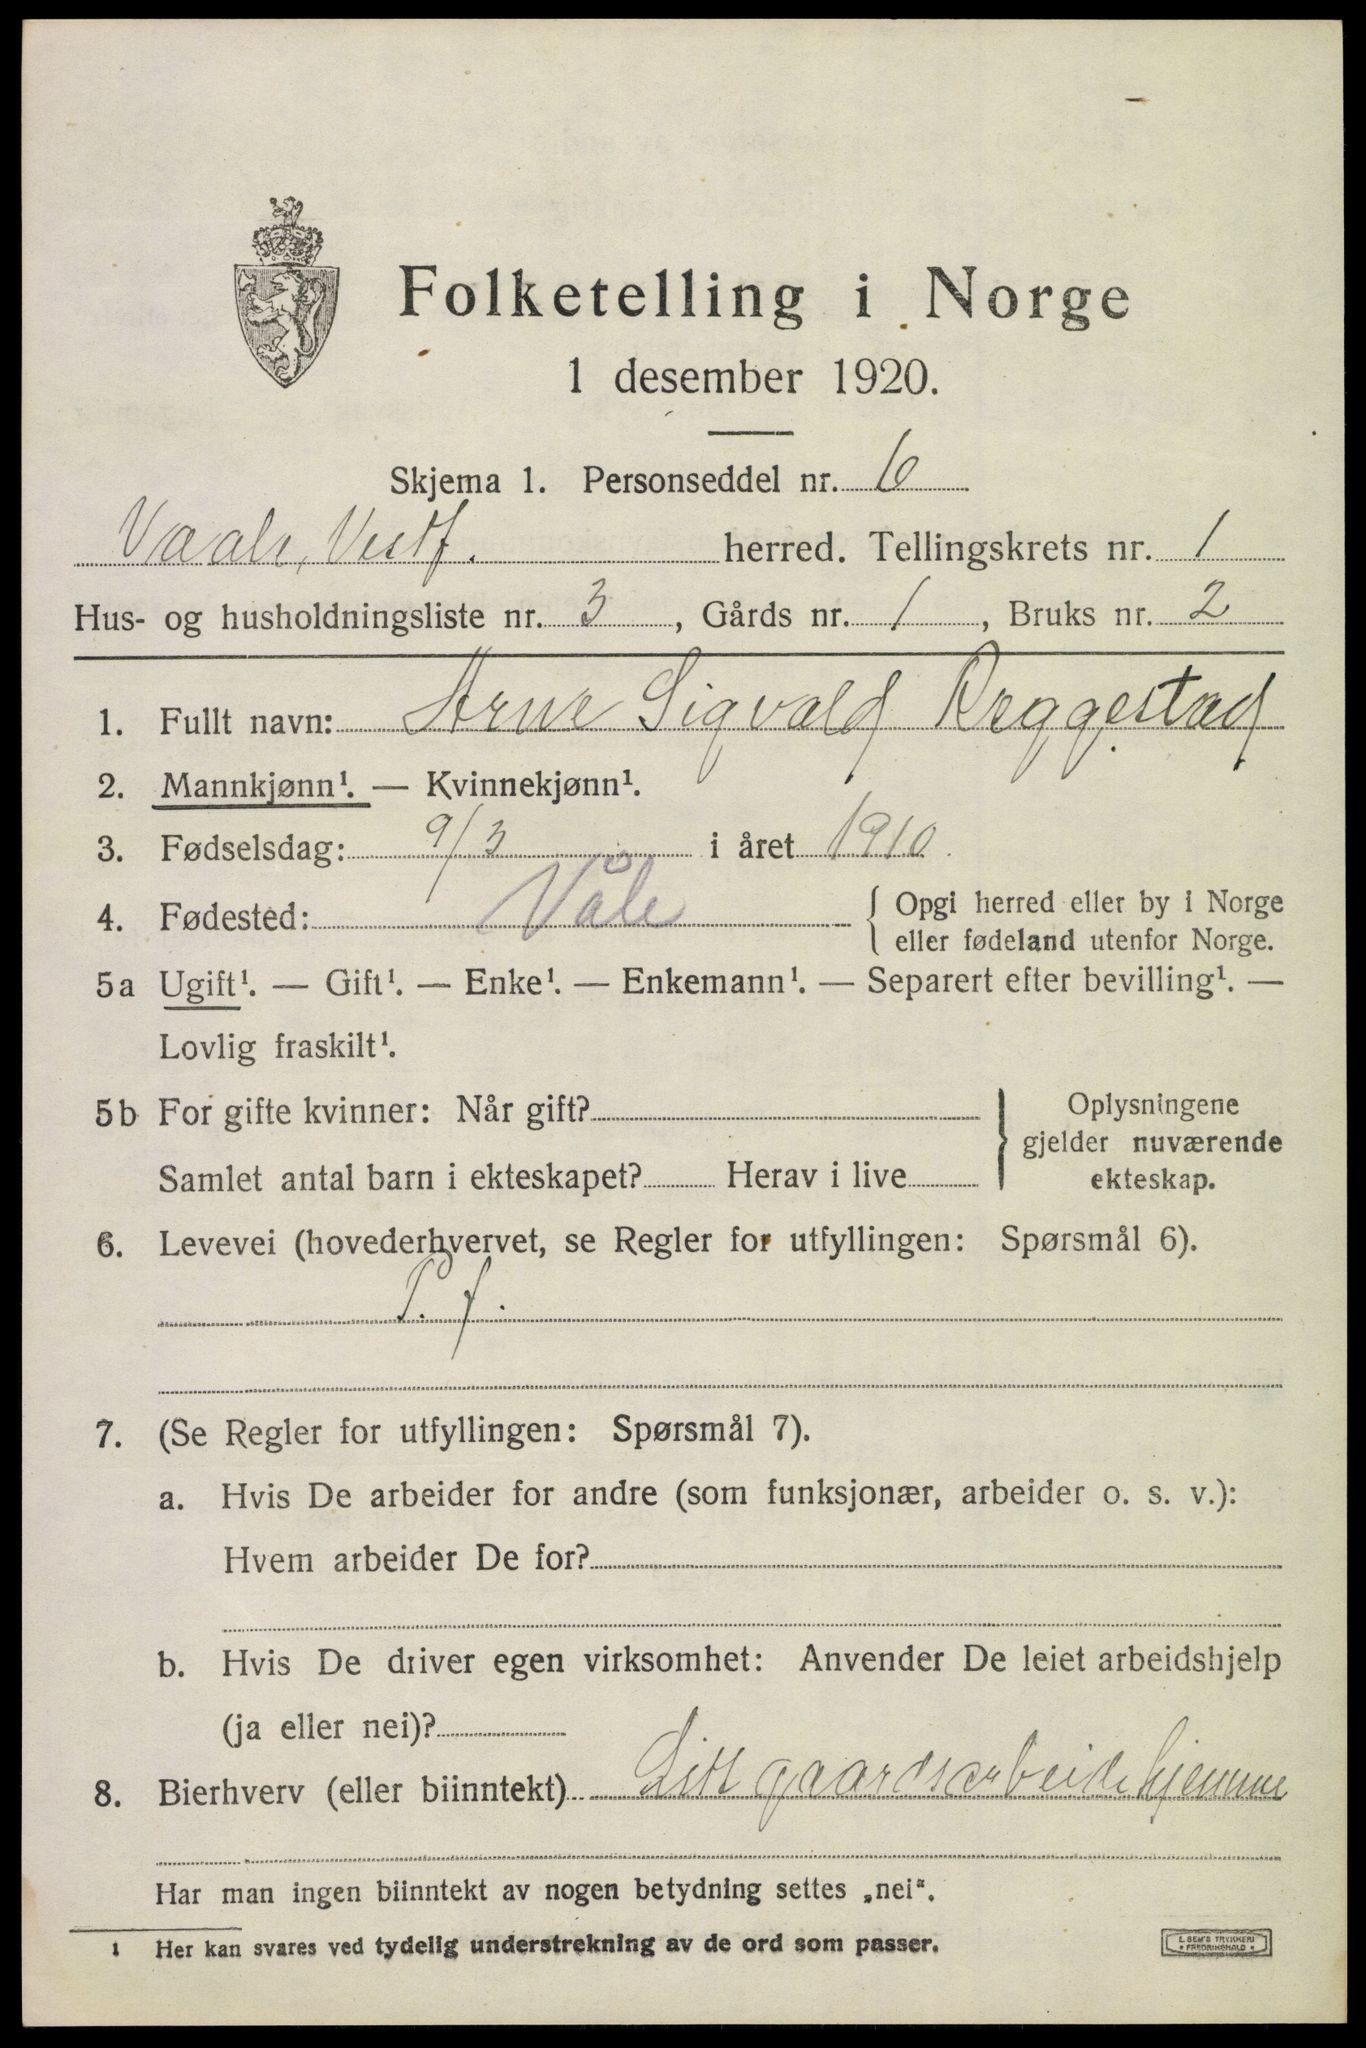 Folketelling i Norge
1 desember 1920.
Skjema 1. Personseddel nr. 6
Vaale, Vestf. herred. Tellingskrets nr. 1
Hus- og husholdningsliste nr. 3, Gårds nr. 1, Bruks nr. 2
1. Fullt navn: Arne Sigvald Reggestad
2. Mannkjønn¹. — Kvinnekjønn¹.
3. Fødselsdag: 9/3 i året 1910.
4. Fødested: Våle { Opgi herred eller by i Norge
eller fødeland utenfor Norge.
5a Ugift¹. — Gift¹. — Enke¹. — Enkemann¹. — Separert efter bevilling¹. —
Lovlig fraskilt¹.
5b For gifte kvinner: Når gift? } Oplysningene
gjelder nuværende
Samlet antal barn i ekteskapet? Herav i live
ekteskap.
6. Levevei (hovederhvervet, se Regler for utfyllingen: Spørsmål 6).
P. f.
7. (Se Regler for utfyllingen: Spørsmål 7).
a. Hvis De arbeider for andre (som funksjonær, arbeider o. s. v.):
Hvem arbeider De for?
b. Hvis De driver egen virksomhet: Anvender De leiet arbeidshjelp
(ja eller nei)?
8. Bierhverv (eller biinntekt) Litt gaardsarbeide hjemme
Har man ingen biinntekt av nogen betydning settes „nei“.
1 Her kan svares ved tydelig understrekning av de ord som passer.
E. SEM'S TRYKKERI
• FREDRIKSHALD •